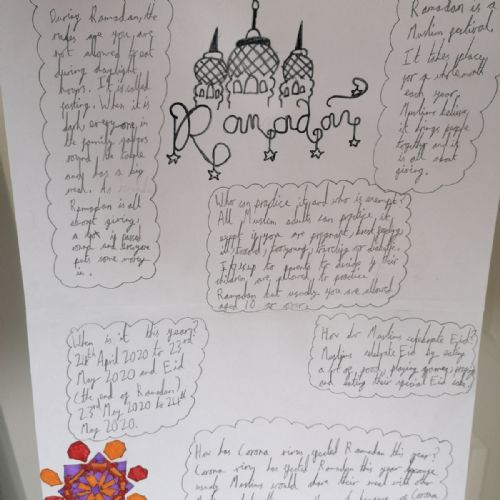 During Ramadan, the
rules are you are
not allowed to eat
during daylight
hours. It is called
fasting. When it is
dark, everyone in
the family gathers
round the table
and has a big
meal.
Ramadan is all
about giving,
a box is passed
round and everyone
puts some money
in.
Ramadan
Ramadan is a
Muslim festival.
It takes place
for a whole month
each year.
Muslims believe
it brings people
together and it
is all about
giving.
Who can practice it and who is exempt?
All Muslim adults can practice it,
expet if you are pregnant, breast feeding
ill, too old, too young, traveling or diabetic.
It is up to parents to decide if their
children are allowed to practice
Ramadan but usually you are allowed
aged 10 or over.
When is it this year?
24th April 2020 to 23rd
May 2020 and Eid
(the end of Ramadan)
23rd May 2020 to 24th
May 2020.
How do Muslims celebrate Eid?
Muslims celebrate Eid by eating
a lot of food, playing games, praying
and eating their special Eid cake.
How has Corona virus effected Ramadan this year?
Corona virus has effected Ramadan this year because
usually Muslims would share their meal with other
Corona